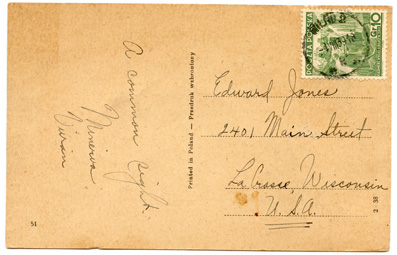 A common sight.
Minerva
Vivian
51
Printed in Poland — Przedruk wzbroniony
POCZTA POLSKA
10 GR
Edward Jones
2401 Main Street
La Crosse, Wisconsin
U.S.A.
2 38